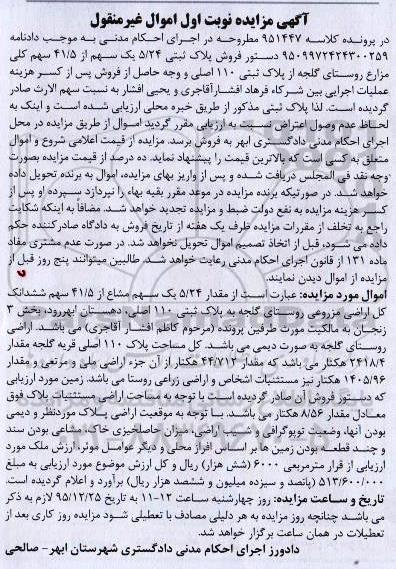 آگهی مزایده نوبت اول اموال غیرمنقول
در پرونده کلاسه ۹۵۱۴۴۷ مطروحه در اجرای احکام مدنی به موجب دادنامه
۹۵۰۹۹۷۲۴۲۴۳۰۰۲۵۹ دستور فروش پلاک ثبتی ۵/۲۴ یک سهم از ۴۱/۵ سهم کلی
مزارع روستای گلجه از پلاک ثبتی ۱۱۰ اصلی و وجه حاصل از فروش پس از کسر هزینه
عملیات اجرایی بین شرکاء فرهاد افشارآقاجری و یحیی افشار به نسبت سهم الارث صادر
گردیده است. لذا پلاک ثبتی مذکور از طریق خبره محلی ارزیابی شده است و اینک به
لحاظ عدم وصول اعتراض نسبت به ارزیابی مقرر گردید اموال از طریق مزایده در محل
اجرای احکام مدنی دادگستری ابهر به فروش برسد. مزایده از قیمت اعلامی شروع و اموال
متعلق به کسی است که بالاترین قیمت را پیشنهاد نماید. ده درصد از قیمت مزایده بصورت
وجه نقد فی المجلس دریافت شده و پس از واریز بهای مزایده، اموال به برنده تحویل داده
خواهد شد. در صورتیکه برنده مزایده در موعد مقرر بقیه بهاء را نپردازد سپرده او پس از
کسر هزینه مزایده به نفع دولت ضبط و مزایده تجدید خواهد شد. مضافاً به اینکه شکایت
راجع به تخلف از مقررات مزایده ظرف یک هفته از تاریخ فروش به دادگاه صادرکننده حکم
داده می شود، قبل از اتخاذ تصمیم اموال تحویل نخواهد شد. در صورت عدم مشتری مفاد
ماده ۱۳۱ از قانون اجرای احکام مدنی رعایت خواهد شد. طالبین میتوانند پنج روز قبل از
مزایده از اموال دیدن نمایند.
اموال مورد مزایده: عبارت است از مقدار ۵/۲۴ یک سهم مشاع از ۴۱/۵ سهم ششدانگ
کل اراضی مزروعی روستای گلجه به پلاک ثبتی ۱۱۰ اصلی، دهستان ابهررود، بخش ۳
زنجان به مالکیت مورث طرفین پرونده (مرحوم کاظم افشار آقاجری) می باشد. اراضی
روستای گلجه به صورت دیمی می باشد. کل مساحت پلاک ۱۱۰ اصلی قریه گلجه مقدار
۲۴۱۸/۴ هکتار می باشد که مقدار ۴۴/۷۱۲ هکتار از آن جزء اراضی ملی و مرتعی و مقدار
۱۴۰۵/۹۶ هکتار نیز مستثنیات اشخاص و اراضی زراعی روستا می باشد. زمین مورد ارزیابی
که دستور فروش آن صادر گردیده است با توجه به مساحت اراضی مستثنیات پلاک فوق
معادل مقدار ۸/۵۶ هکتار می باشد. با توجه به موقعیت اراضی پلاک موردنظر و دیمی
بودن آنها، وضعیت توپوگرافی و شیب اراضی، میزان حاصلخیزی خاک، مشاعی بودن سند
و چند قطعه بودن زمین ها بر اساس افراز محلی و دیگر عوامل موثر، ارزش ملک مورد
ارزیابی از قرار مترمربعی ۶۰۰۰ (شش هزار) ریال و کل ارزش موضوع مورد ارزیابی به مبلغ
۵۱۳/۶۰۰/۰۰۰ (پانصد و سیزده میلیون و ششصد هزار ریال) برآورد و اعلام گردیده است.
تاریخ و ساعت مزایده: روز چهارشنبه ساعت ۱۲-۱۱ به تاریخ ۹۵/۱۲/۲۵ لازم به ذکر
می باشد چنانچه روز مزایده به هر دلیلی مصادف با تعطیلی شود مزایده روز کاری بعد از
تعطیلات در همان ساعت برگزار خواهد شد.
دادورز اجرای احکام مدنی دادگستری شهرستان ابهر- صالحی